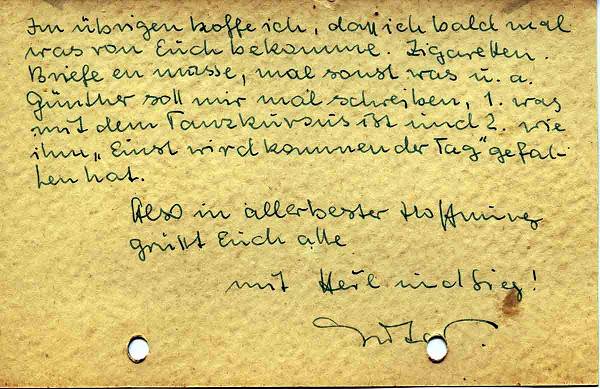 Im übrigen hoffe ich, daß ich bald mal
was von Euch bekomme. Zigaretten.
Briefe en masse, mal sonst was u. a.
Günther soll mir mal schreiben, 1. was
mit dem Tanzkursus ist und 2. wie
ihm „Einst wird kommen der Tag" gefal-
len hat.
Also in allerbester Hoffnung
grüßt Euch alle
mit Heil und Sieg!